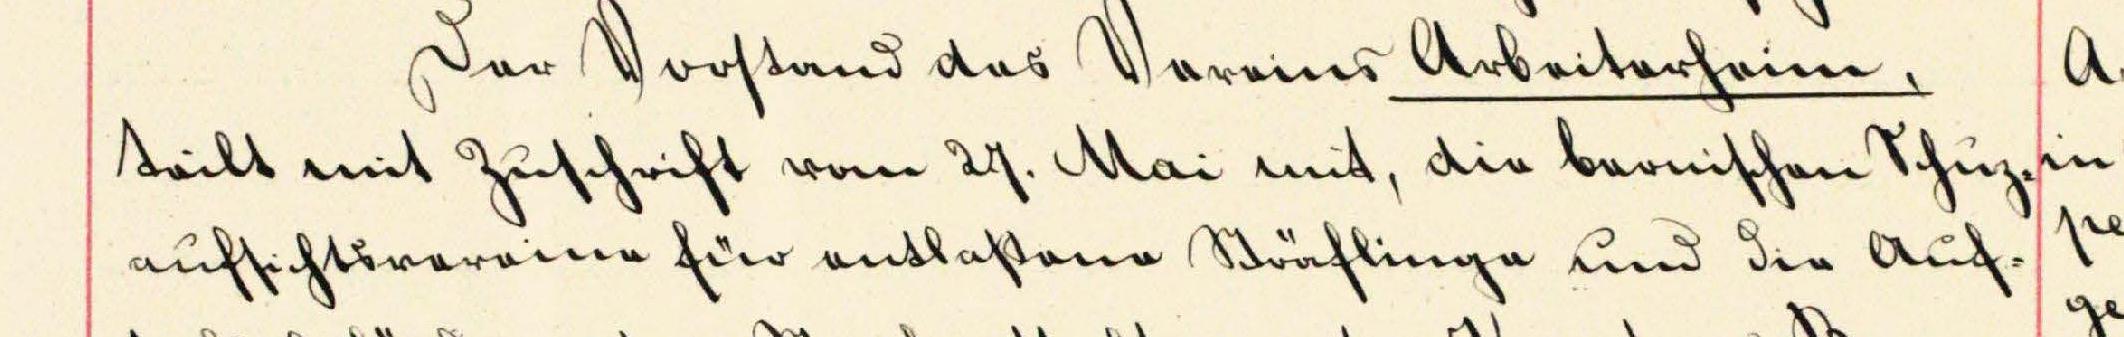 Der Vorstand des Vereins Arbeiterheim,
teilt mit Zuschrift vom 27. Mai mit, die bernischen Schuz-
aufsichtsvereine für entlaßene Sträflinge und die Auf-
A.
in
pe
ge